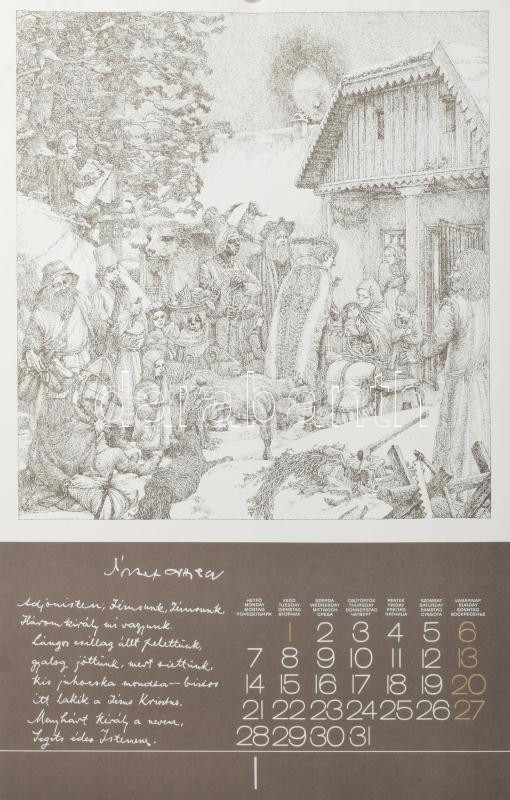 darabanth
József Attila
Adjonisten, Jézusunk, Jézusunk
Három király mi vagyunk.
Lángos csillag állt felettünk,
gyalog jöttünk, mert siettünk,
kis juhocska mondta – biztos
itt lakik a Jézus Krisztus.
Menyhárt király a nevem,
Segíts édes Istenem.
HÉTFŐ KEDD SZERDA CSÜTÖRTÖK PÉNTEK SZOMBAT VASÁRNAP
MONDAY TUESDAY WEDNESDAY THURSDAY FRIDAY SATURDAY SUNDAY
MONTAG DIENSTAG MITTWOCH DONNERSTAG FREITAG SAMSTAG SONNTAG
ПОНЕДЕЛЬНИК ВТОРНИК СРЕДА ЧЕТВЕРГ ПЯТНИЦА СУББОТА ВОСКРЕСЕНЬЕ
1 2 3 4 5 6
7 8 9 10 11 12 13
14 15 16 17 18 19 20
21 22 23 24 25 26 27
28 29 30 31
I